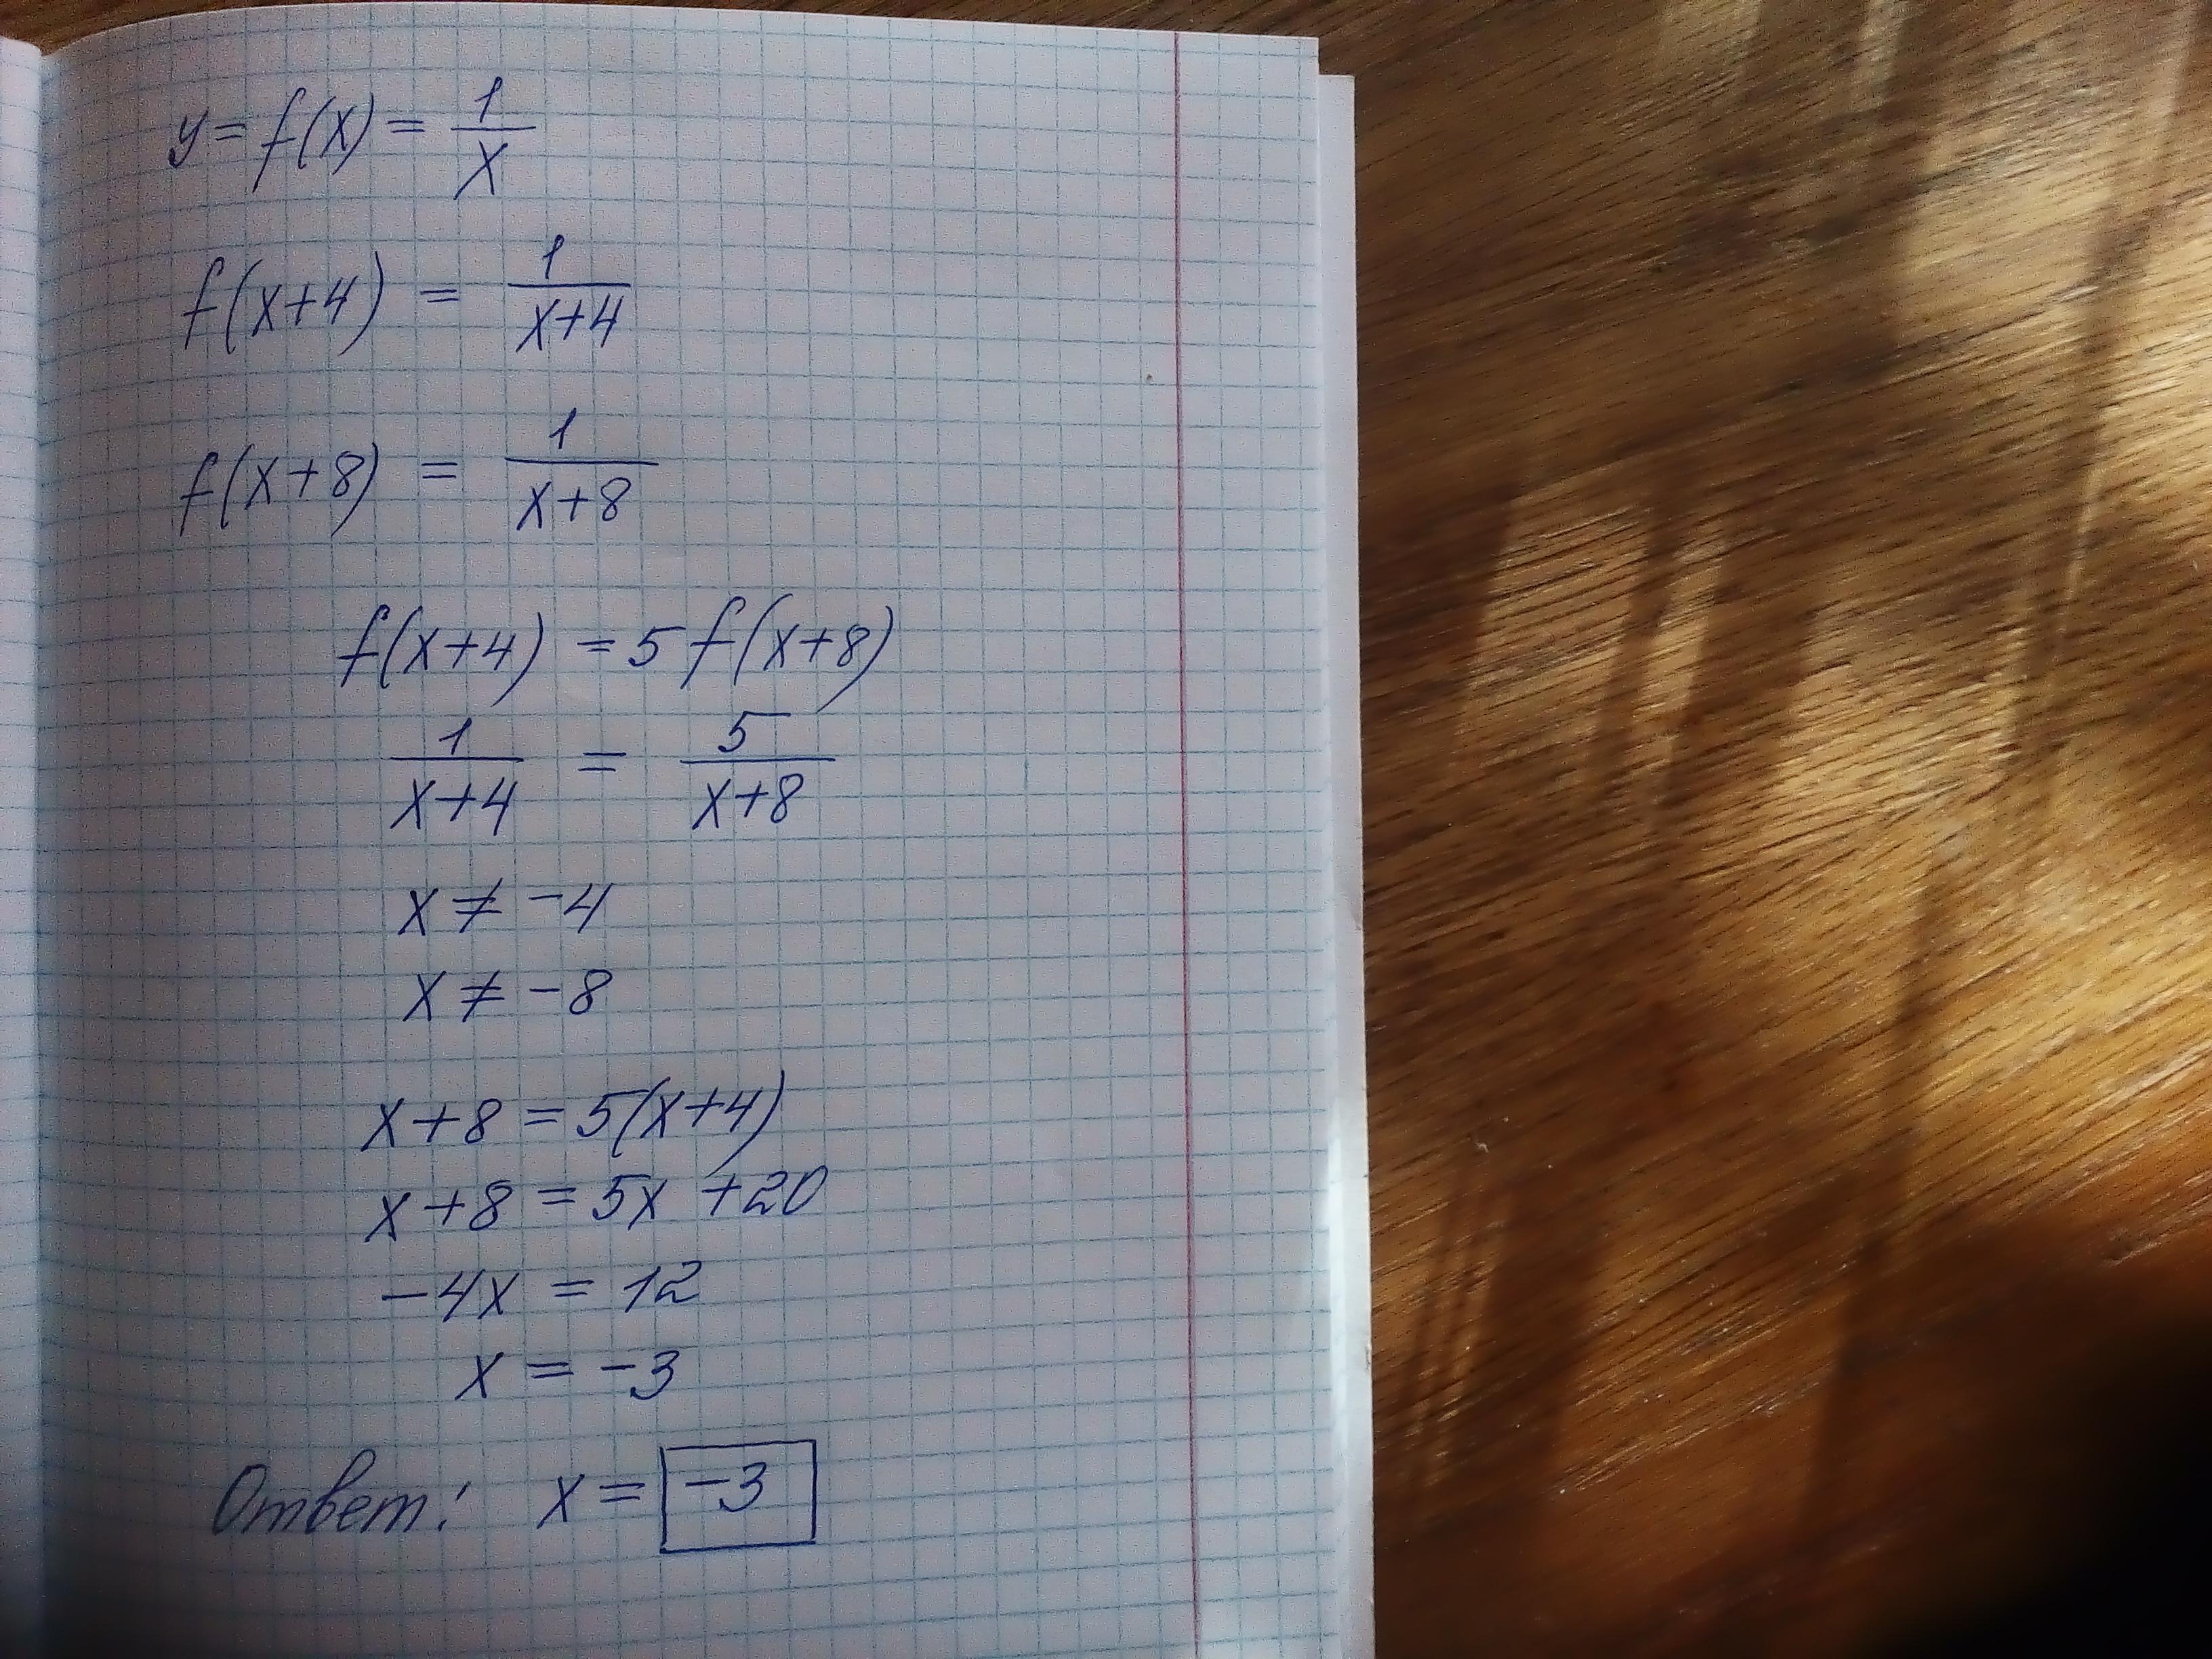 y = f(x) = 1/x
f(x+4) = 1/(x+4)
f(x+8) = 1/(x+8)
f(x+4) = 5 f(x+8)
1/(x+4) = 5/(x+8)
x ≠ -4
x ≠ -8
x+8 = 5(x+4)
x+8 = 5x +20
-4x = 12
x = -3
Ответ: x = -3